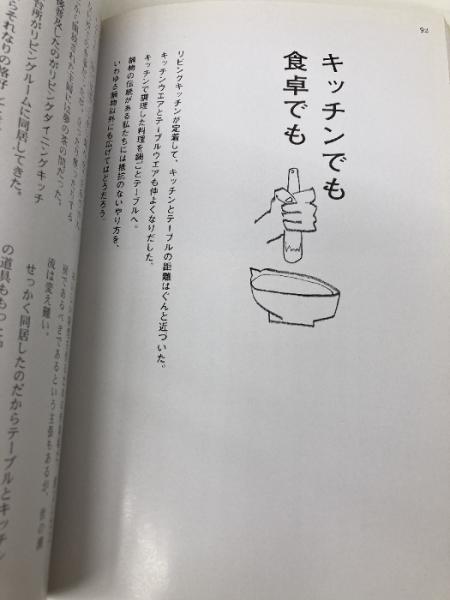 92
キッチンでも
食卓でも
リビングキッチンが定着して、キッチンとテーブルの距離はぐんと近づいた。
キッチンウエアとテーブルウエアも仲よくなりだした。
キッチンで調理した料理を鍋ごとテーブルへ。
鍋物の伝統がある私たちには抵抗のないやり方を、
いわゆる鍋物以外にも広げてはどうだろう。
であるべきであるという主張もあるが、
流は変え難い。
せっかく同居したのだからテーブルとキッチン
の道具ももっと
普及したのがリビングダイニングキッチ
台所がリビングルームに同居してきた。
らそれなりの格好